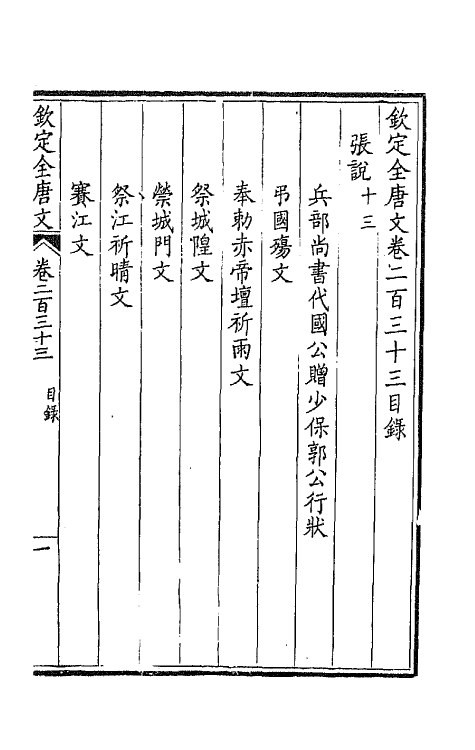 欽定全唐文卷二百三十三目錄
張說十三
兵部尚書代國公贈少保郭公行狀
弔國殤文
奉勅赤帝壇祈雨文
祭城隍文
禜城門文
祭江祈晴文
賽江文
欽定全唐文 卷二百三十三 目錄 一